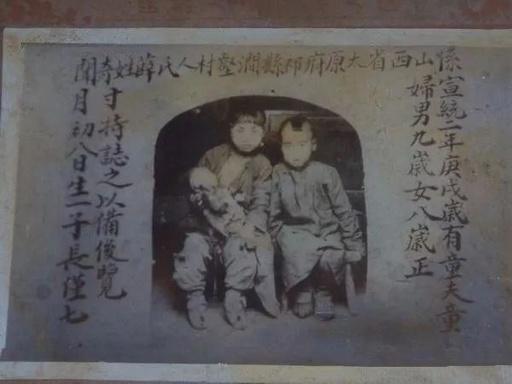 山西省太原府祁縣澗壑村人氏薛姓奇聞
係宣統二年庚戌歲有童夫童
婦男九歲女八歲正
月初八日生一子長僅七
寸特誌之以備後覽